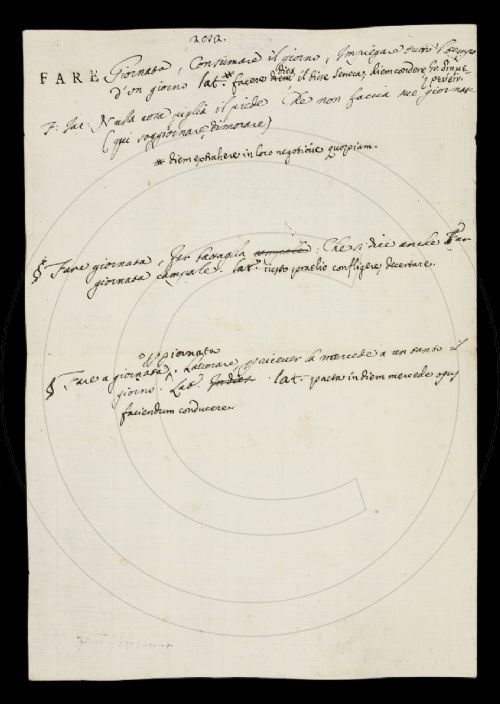 2012.
FARE Giornata, Consumare il giorno, Impiegare tutto il tempo
d'un giorno. lat. * facere diem il disse Seneca, diem condere
F. Jac: Nulla cosa piglia il piede Che non faccia sue giornate
(qui soggiornare, dimorare)
* diem extrahere in loco negotiove quopiam.
§ Fare giornata, Far battaglia campale: Che si dice anche Far
giornata campale. lat. iusto praelio confligere, decertare.
o per giornata
§ Fare a giornata. Lavorare, e ricever la mercede a un tanto il
giorno. Lat. lat. pacta in diem mercede opus
faciendum conducere.